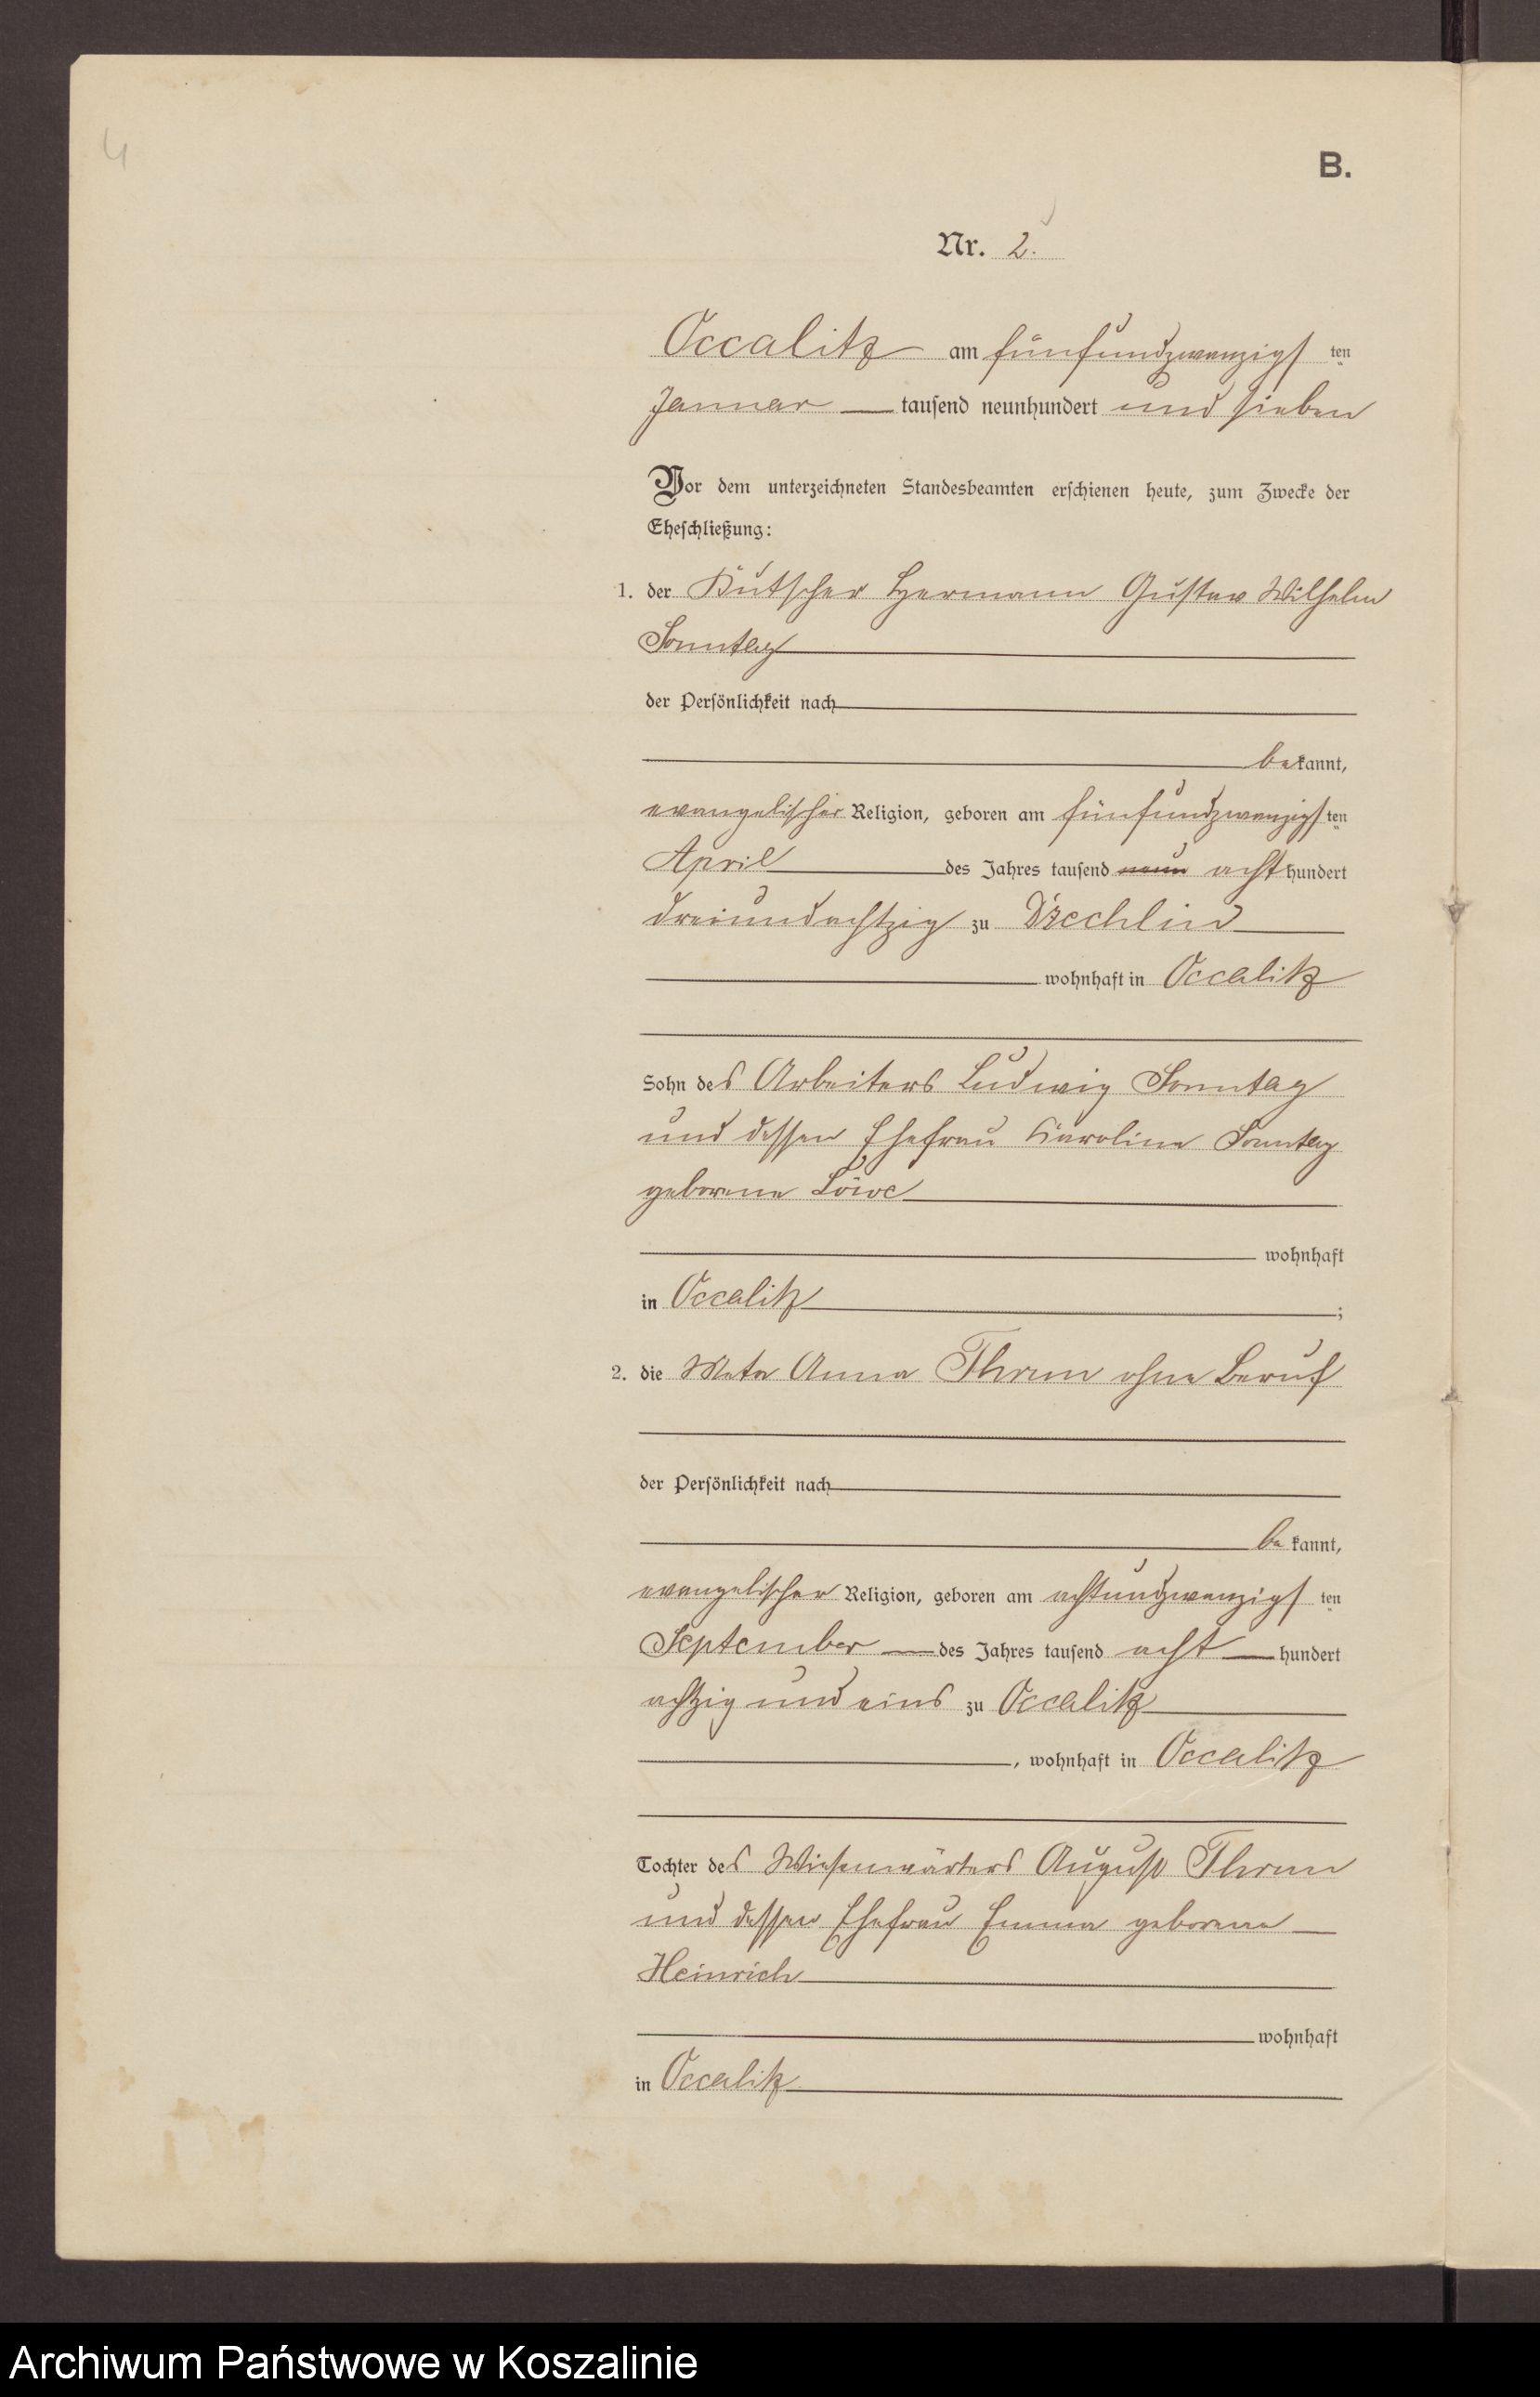 4
B.
Nr. 2.
Occalitz am fünfundzwanzigsten
Januar tausend neunhundert und sieben
Vor dem unterzeichneten Standesbeamten erschienen heute, zum Zwecke der
Eheschließung:
1. der Kutscher Hermann Gustav Wilhelm
Sonntag
der Persönlichkeit nach
bekannt,
evangelischer Religion, geboren am fünfundzwanzigsten
April des Jahres tausend neun achthundert
dreiundachtzig zu Dzechlin
wohnhaft in Occalitz
Sohn des Arbeiters Ludwig Sonntag
und dessen Ehefrau Karoline Sonntag
geborene Löwe
wohnhaft
in Occalitz ;
2. die Meta Anna Thrun ohne Beruf
der Persönlichkeit nach
bekannt,
evangelischer Religion, geboren am achtundzwanzigsten
September des Jahres tausend acht hundert
achtzig und eins zu Occalitz
, wohnhaft in Occalitz
Tochter des Wiesenwärters August Thrun
und dessen Ehefrau Emma geborene
Heinrich
wohnhaft
in Occalitz
Archiwum Państwowe w Koszalinie